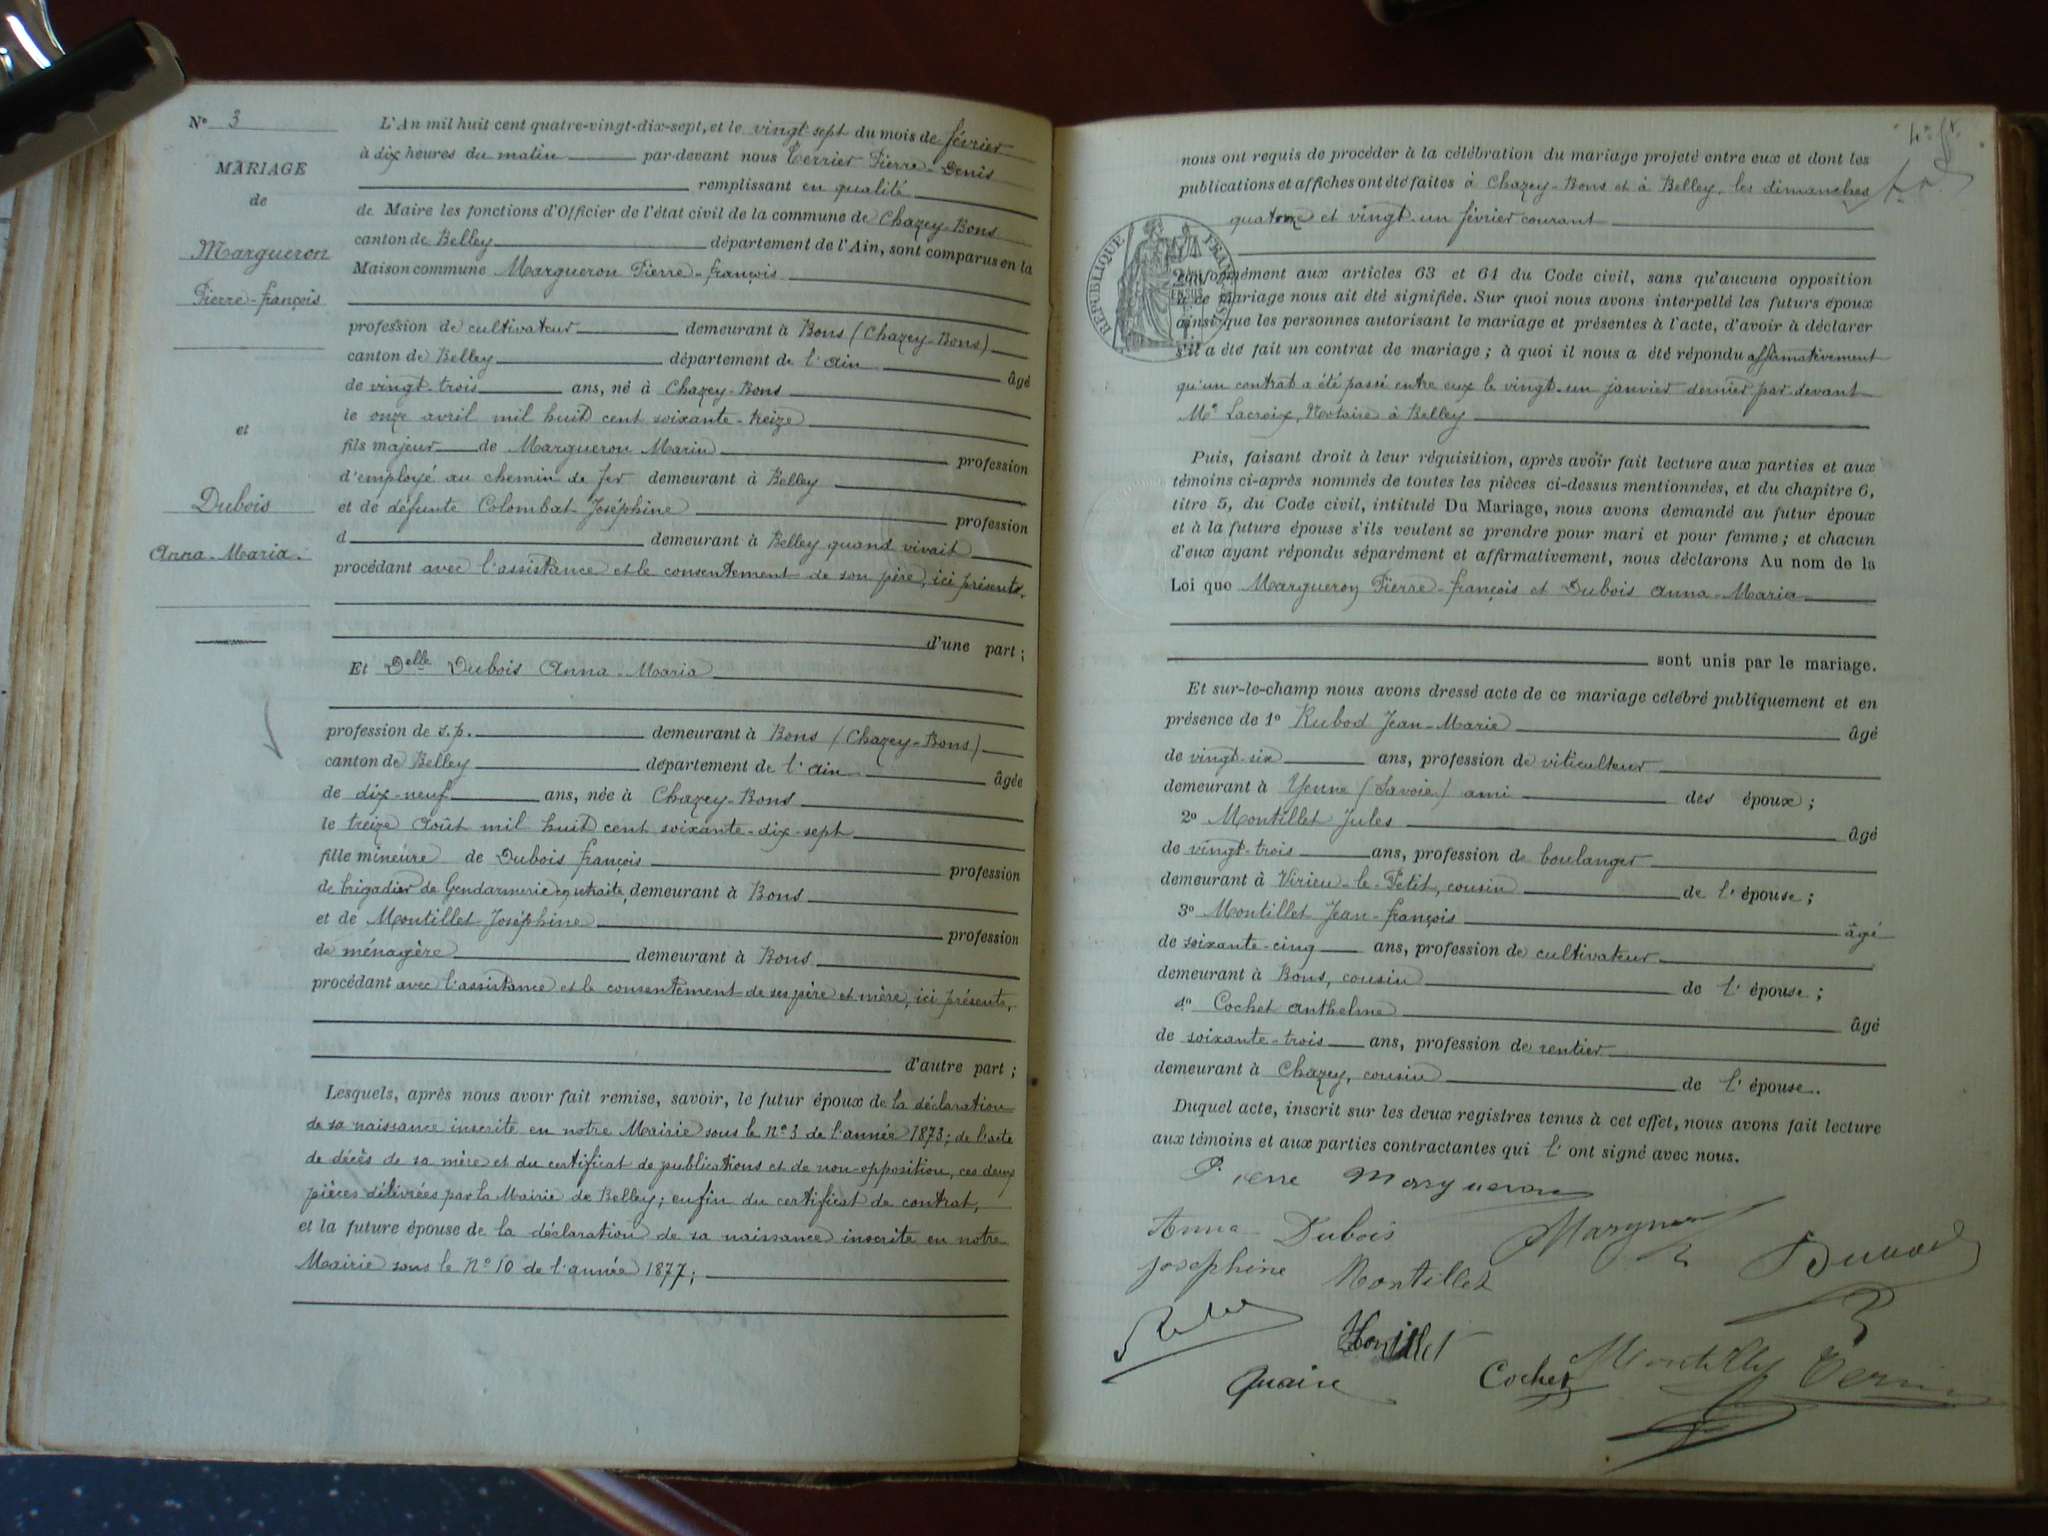 N° 3
MARIAGE
de
Margueron
Pierre-françois
et
Dubois
Anna-Maria.
L'An mil huit cent quatre-vingt-dix-sept, et le vingt-sept du mois de février
à dix heures du matin par-devant nous Terrier Pierre-Denis
remplissant en qualité
de Maire les fonctions d'Officier de l'état civil de la commune de Chazey-Bons
canton de Belley département de l'Ain, sont comparus en la
Maison commune Margueron Pierre-françois
profession de cultivateur demeurant à Bons (Chazey-Bons)
canton de Belley département de l'Ain âgé
de vingt-trois ans, né à Chazey-Bons
le onze avril mil huit cent soixante-treize
fils majeur de Margueron Marin profession
d'employé au chemin de fer demeurant à Belley
et de défunte Colombat Joséphine profession
d demeurant à Belley quand vivait
procédant avec l'assistance et le consentement de son père, ici présents,
d'une part ;
Et Delle Dubois Anna-Maria
profession de s.p. demeurant à Bons (Chazey-Bons)
canton de Belley département de l'Ain âgée
de dix-neuf ans, née à Chazey-Bons
le treize Août mil huit cent soixante-dix-sept
fille mineure de Dubois françois profession
de brigadier de Gendarmerie en retraite, demeurant à Bons
et de Montillet Joséphine profession
de ménagère demeurant à Bons
procédant avec l'assistance et le consentement de ses père et mère, ici présents,
d'autre part ;
Lesquels, après nous avoir fait remise, savoir, le futur époux de la déclaration
de sa naissance inscrite en notre Mairie sous le N° 3 de l'année 1873; de l'acte
de décès de sa mère et du certificat de publications et de non-opposition, ces deux
pièces délivrées par la Mairie de Belley; enfin du certificat de contrat,
et la future épouse de la déclaration de sa naissance inscrite en notre
Mairie sous le N° 10 de l'année 1877;
nous ont requis de procéder à la célébration du mariage projeté entre eux et dont les
publications et affiches ont été faites à Chazey-Bons et à Belley, les dimanches
quatorze et vingt-un février courant
RÉPUBLIQUE FRANÇAISE
conformément aux articles 63 et 64 du Code civil, sans qu'aucune opposition
à ce mariage nous ait été signifiée. Sur quoi nous avons interpellé les futurs époux
ainsi que les personnes autorisant le mariage et présentes à l'acte, d'avoir à déclarer
s'il a été fait un contrat de mariage ; à quoi il nous a été répondu affirmativement
qu'un contrat a été passé entre eux le vingt-un janvier dernier par devant
Me Lacroix, Notaire à Belley
Puis, faisant droit à leur réquisition, après avoir fait lecture aux parties et aux
témoins ci-après nommés de toutes les pièces ci-dessus mentionnées, et du chapitre 6,
titre 5, du Code civil, intitulé Du Mariage, nous avons demandé au futur époux
et à la future épouse s'ils veulent se prendre pour mari et pour femme ; et chacun
d'eux ayant répondu séparément et affirmativement, nous déclarons Au nom de la
Loi que Margueron Pierre-françois et Dubois Anna-Maria
sont unis par le mariage.
Et sur-le-champ nous avons dressé acte de ce mariage célébré publiquement et en
présence de 1° Rubod Jean-Marie âgé
de vingt-six ans, profession de viticulteur
demeurant à Yenne (Savoie) ami des époux ;
2° Montillet Jules âgé
de vingt-trois ans, profession de boulanger
demeurant à Virieu-le-Petit, cousin de l'épouse ;
3° Montillet Jean-françois âgé
de soixante-cinq ans, profession de cultivateur
demeurant à Bons, cousin de l'épouse ;
4° Cochet Anthelme âgé
de soixante-trois ans, profession de rentier
demeurant à Chazey, cousin de l'épouse.
Duquel acte, inscrit sur les deux registres tenus à cet effet, nous avons fait lecture
aux témoins et aux parties contractantes qui l'ont signé avec nous.
Pierre Margueron
Anna Dubois
Josephine Montillet
Cochet